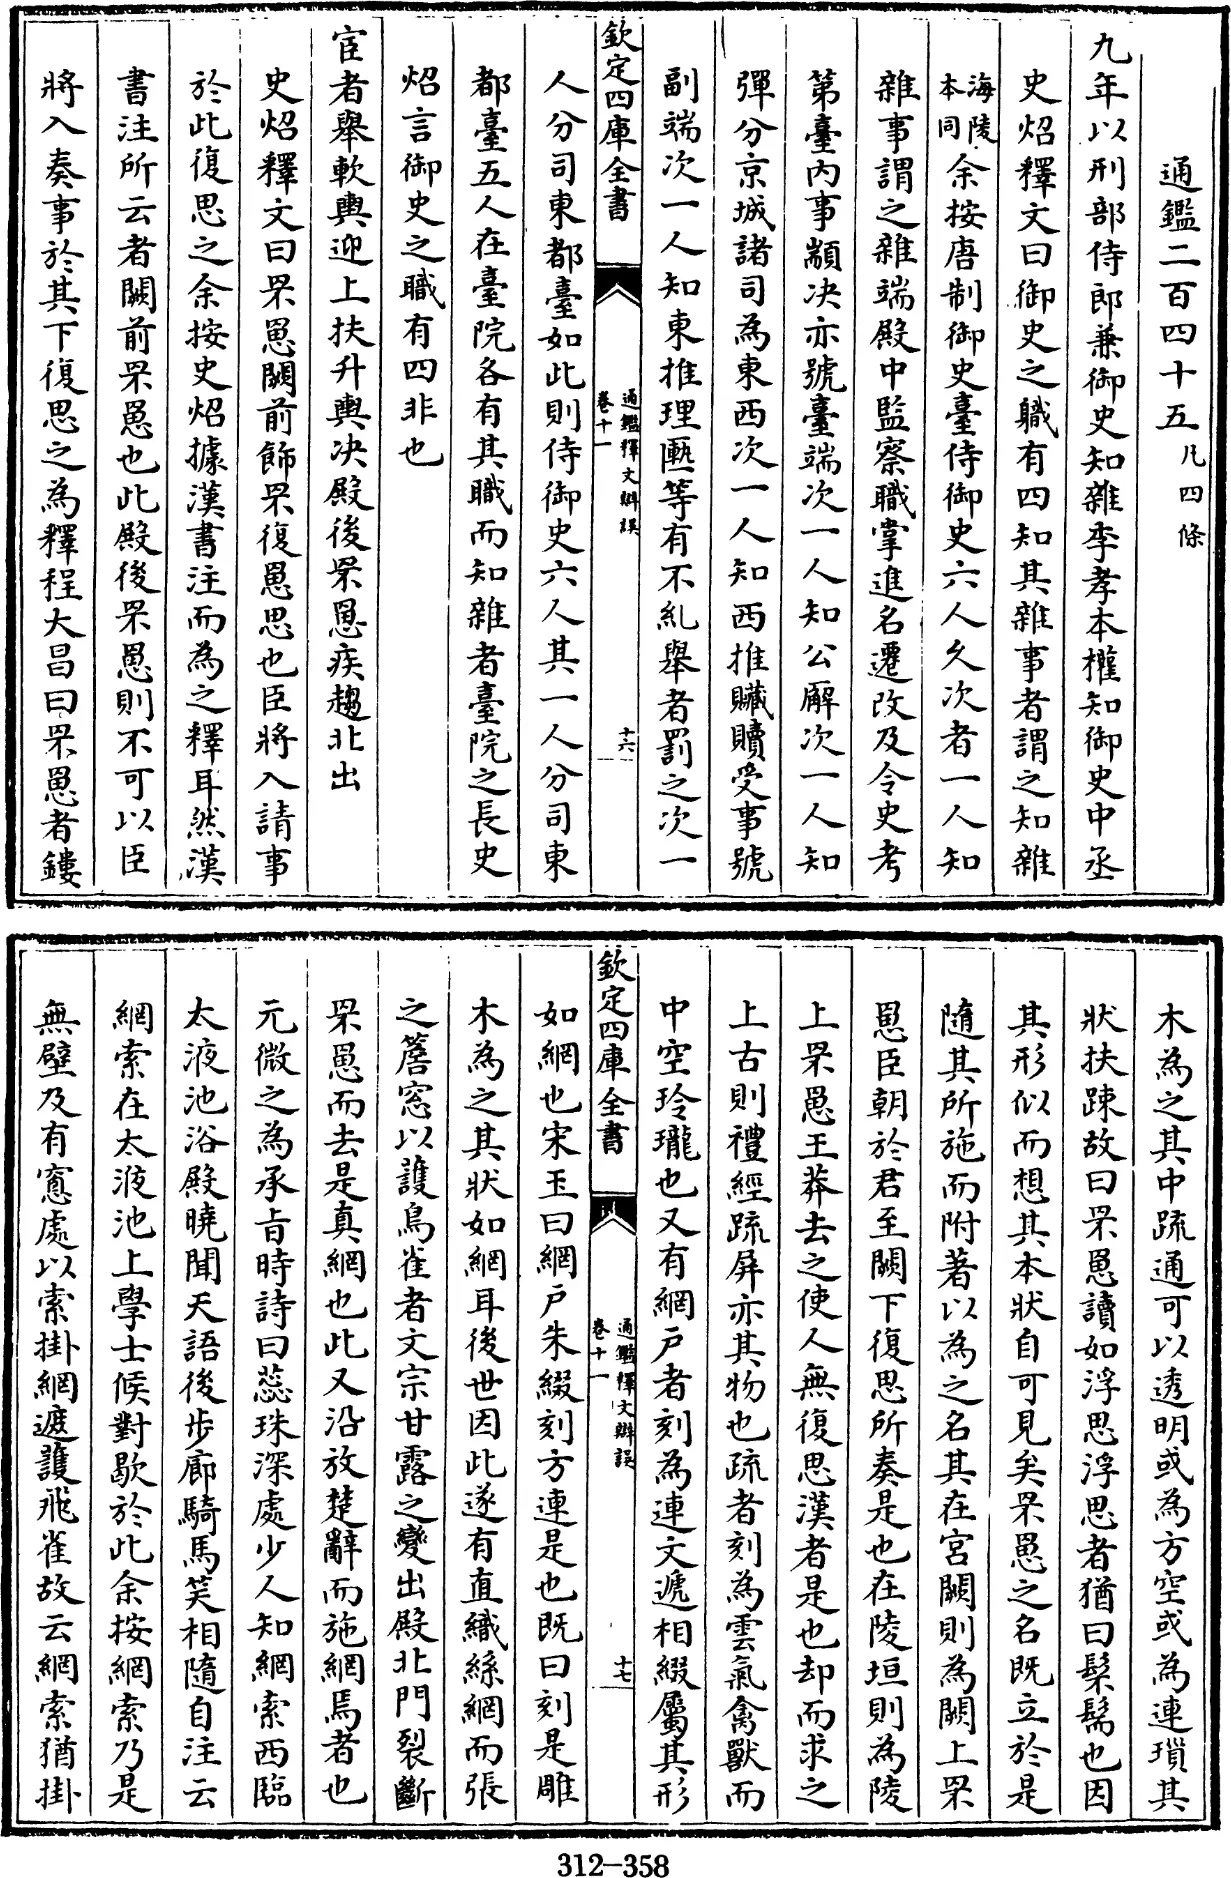 通鑑二百四十五凡四條
九年以刑部侍郎兼御史知雜李孝本權知御史中丞
史炤釋文曰御史之職有四知其雜事者謂之知雜
海陵本同余按唐制御史臺侍御史六人久次者一人知
雜事謂之雜端殿中監察職掌進名遷改及令史考
第臺內事顓决亦號臺端次一人知公廨次一人知
彈分京城諸司為東西次一人知西推贓贖受事號
副端次一人知東推理匭等有不糺舉者罰之次一
欽定四庫全書
通鑑釋文辨誤
卷十一
十六
人分司東都臺如此則侍御史六人其一人分司東
都臺五人在臺院各有其職而知雜者臺院之長史
炤言御史之職有四非也
宦者舉軟輿迎上扶升輿决殿後罘罳疾趨北出
史炤釋文曰罘罳闕前飾罘復罳思也臣將入請事
於此復思之余按史炤據漢書注而為之釋耳然漢
書注所云者闕前罘罳也此殿後罘罳則不可以臣
將入奏事於其下復思之為釋程大昌曰罘罳者鏤
木為之其中疏通可以透明或為方空或為連瑣其
狀扶疎故曰罘罳讀如浮思浮思者猶曰髼髵也因
其形似而想其本狀自可見矣罘罳之名既立於是
隨其所施而附著以為之名其在宮闕則為闕上罘
罳臣朝於君至闕下復思所奏是也在陵垣則為陵
上罘罳王莽去之使人無復思漢者是也却而求之
上古則禮經疏屏亦其物也疏者刻為雲氣禽獸而
中空玲瓏也又有網戶者刻為連文遞相綴屬其形
欽定四庫全書
通鑑釋文辨誤
卷十一
十七
如網也宋玉曰網戶朱綴刻方連是也既曰刻是雕
木為之其狀如網耳後世因此遂有直織絲網而張
之簷窓以護鳥雀者文宗甘露之變出殿北門裂斷
罘罳而去是真網也此又沿放楚辭而施網焉者也
元微之為承旨時詩曰蕊珠深處少人知網索西臨
太液池浴殿曉聞天語後步廊騎馬笑相隨自注云
網索在太液池上學士候對歇於此余按網索乃是
無壁及有窻處以索掛網遮護飛雀故云網索猶掛
312-358